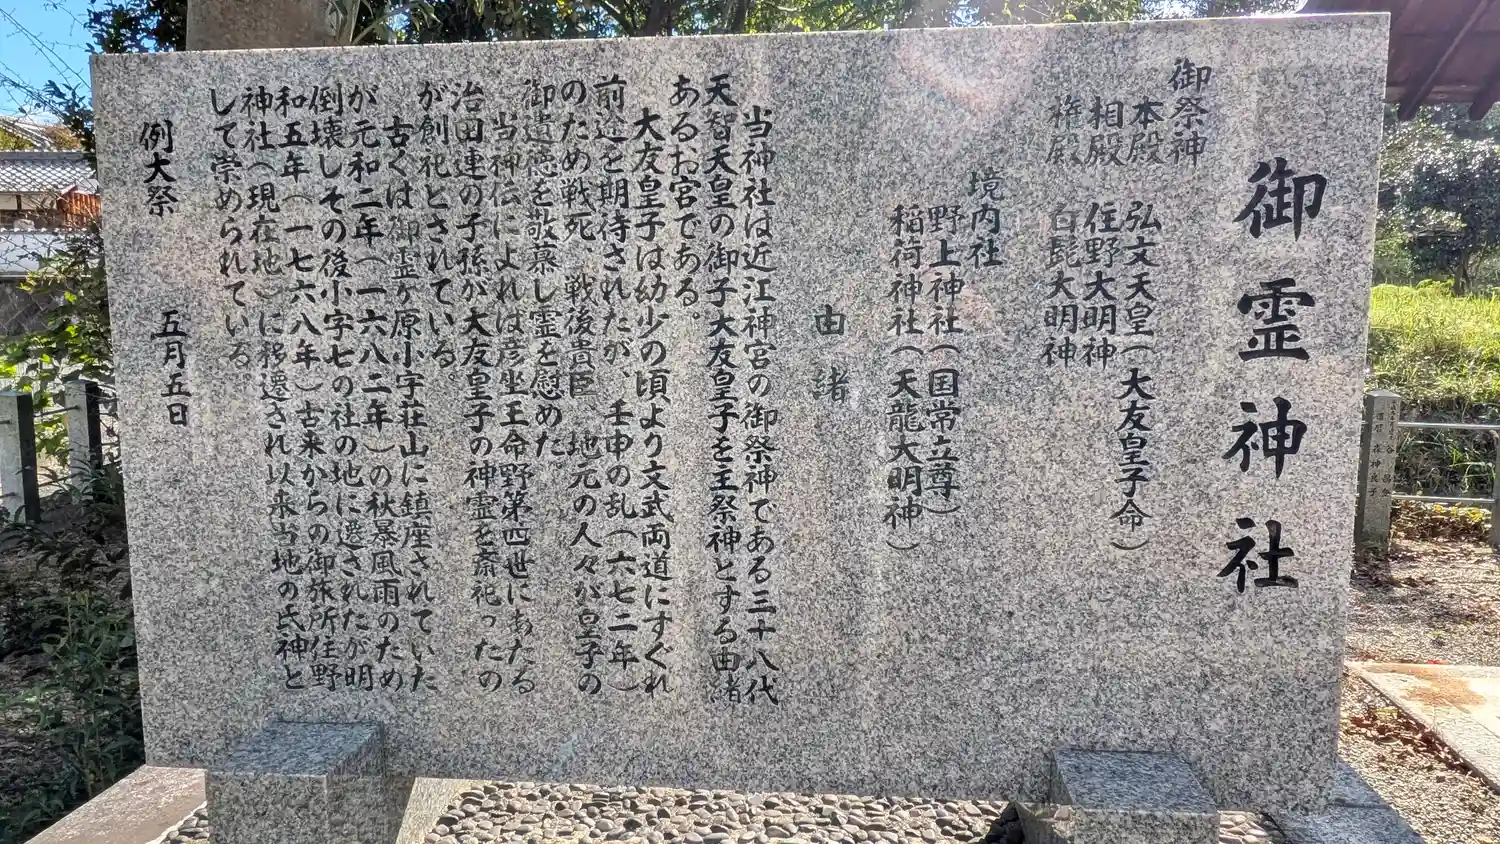 御霊神社
御祭神
本殿 弘文天皇(大友皇子命)
相殿 住野大明神
権殿 白髭大明神
境内社
野上神社(国常立尊)
稲荷神社(天龍大明神)
由緒
当神社は近江神宮の御祭神である三十八代
天智天皇の御子大友皇子を主祭神とする由緒
あるお宮である。
大友皇子は幼少の頃より文武両道にすぐれ
前途を期待されたが、壬申の乱(六七二年)
のため戦死、戦後貴臣、地元の人々が皇子の
御遺徳を敬慕し霊を慰めた。
当神伝によれは彦坐王命野第四世にあたる
治田連の子孫が大友皇子の神霊を斎祀ったの
が創祀とされている。
古くは御霊ヶ原小字荘山に鎮座されていた
が元和二年(一六八二年)の秋暴風雨のため
倒壊しその後小字七の社の地に遷されたが明
和五年(一七六八年)古来からの御旅所住野
神社(現在地)に移遷され以来当地の氏神と
して崇められている。
例大祭 五月五日